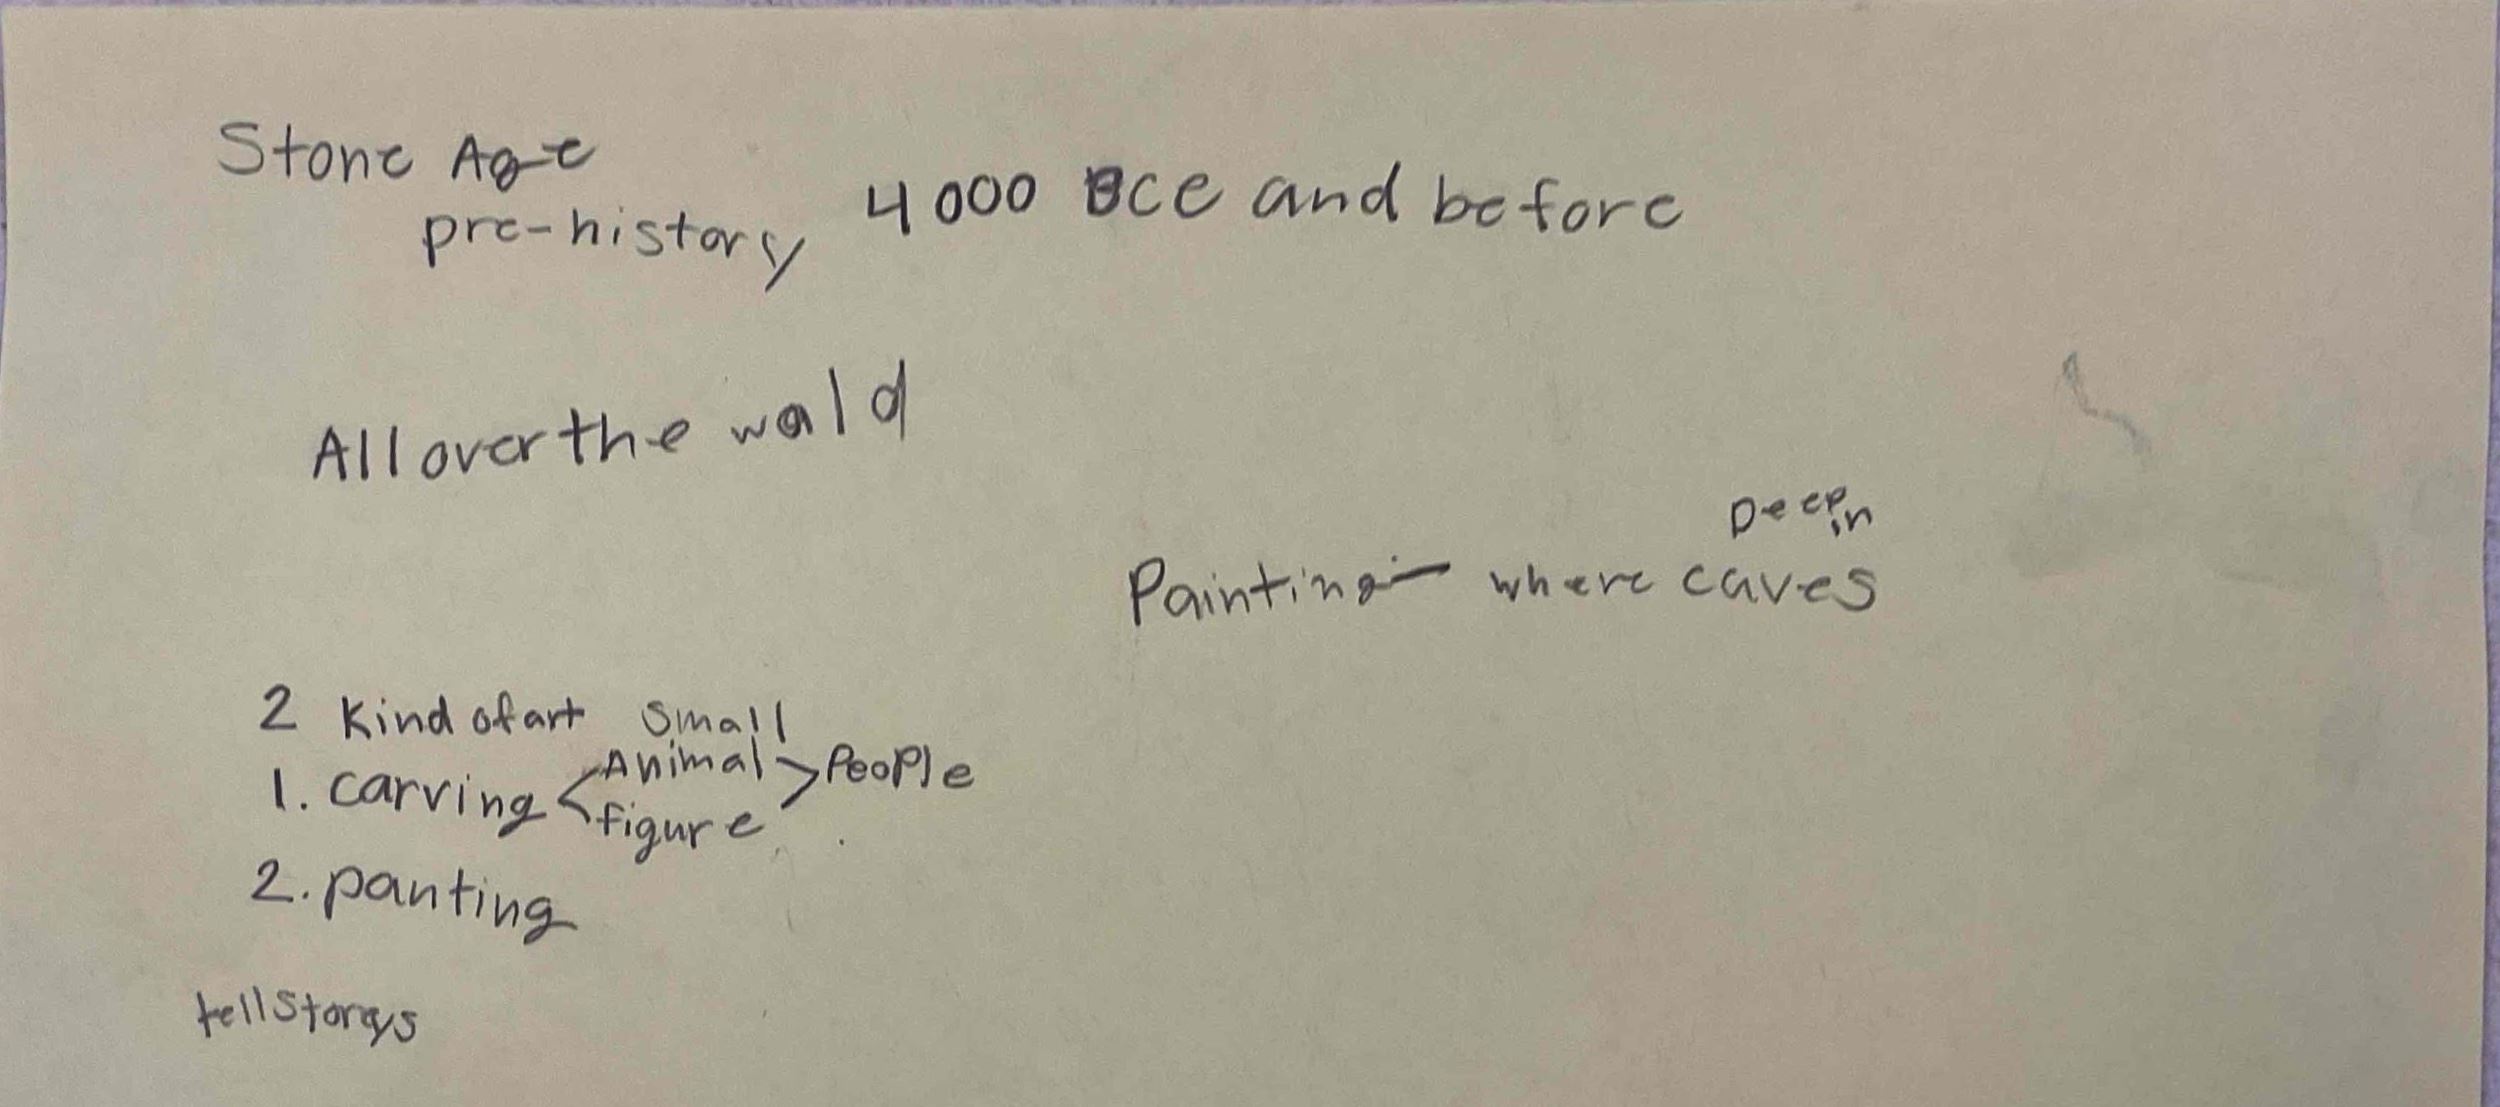 Stone Age
pre-history 4000 BCE and before
All over the wald
Deep in
Painting - where caves
2 Kind of art small
1. carving < Animal > People
figure
2. panting
tell Storeys